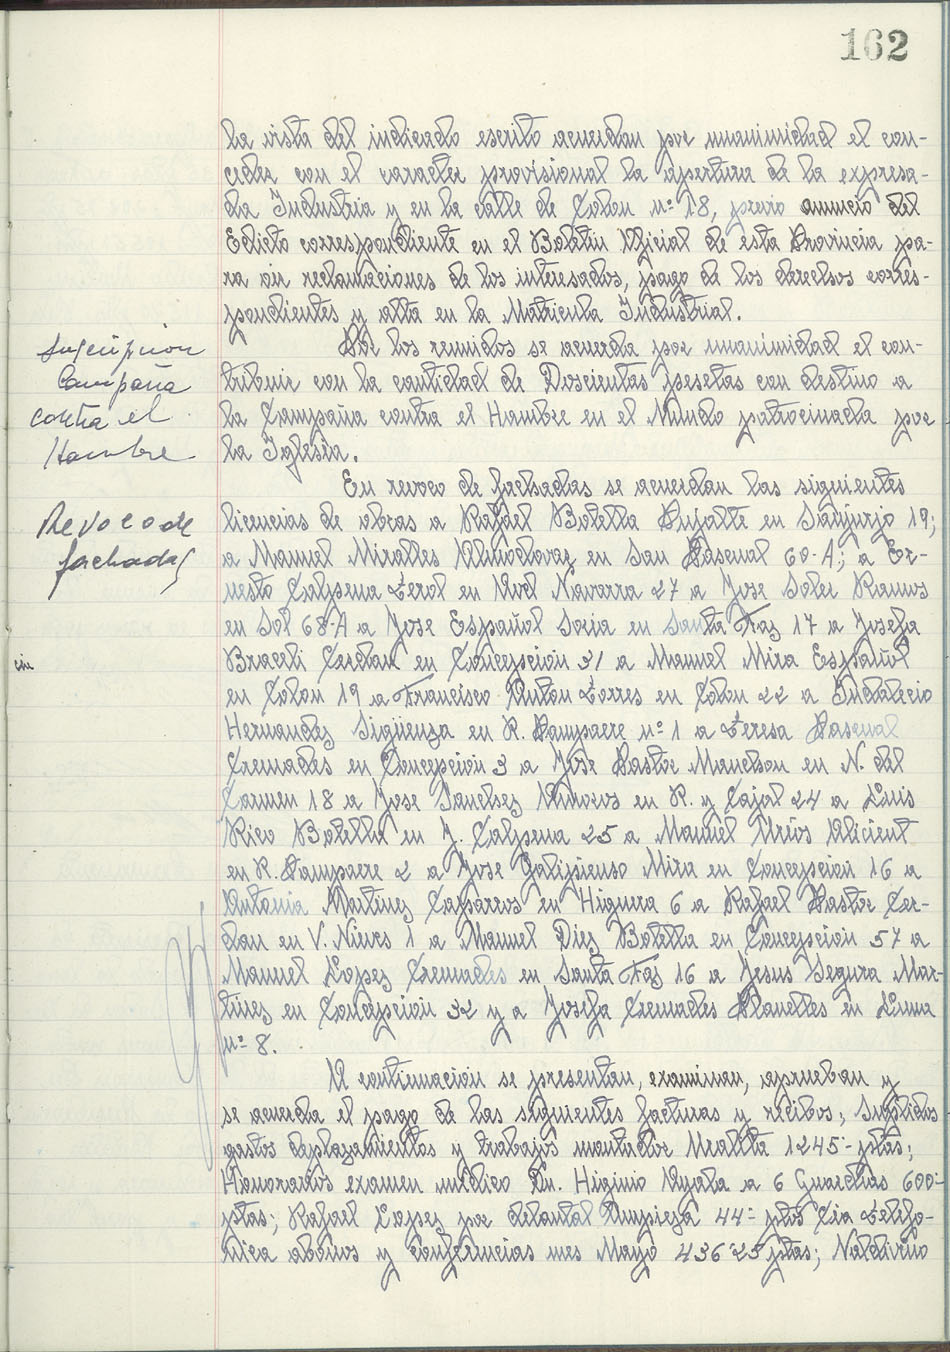 162
la vista del indicado escrito acuerdan por unanimidad el con-
ceder con el caracter provisional la apertura de la expresa-
da Industria y en la calle de Colon nº 18, previo anuncio del
Edicto correspondiente en el Boletin Oficial de esta Provincia pa-
ra oir reclamaciones de los interesados, pago de los derechos corres-
pondientes y alta en la Matricula Industrial.
Suscripcion
Campaña
contra el
Hambre
Por los reunidos se acuerda por unanimidad el con-
tribuir con la cantidad de Doscientas pesetas con destino a
la Campaña contra el Hambre en el Mundo patrocinada por
la Iglesia.
Revoco de
fachadas
En revoco de fachadas se acuerdan las siguientes
licencias de obras a Rafael Botella Pujalte en Sanjurjo 19;
a Manuel Miralles en San Pascual 60-A; a Er-
nesto Calpena Terol en Navarra 27 a Jose Soler Ramos
en Sol 68-A a Jose Español Soria en Santa Faz 17 a Josefa
Cerdan en Concepcion 31 a Manuel Mira Español
en Colon 19 a Francisco Anton Torres en Colon 22 a Indalecio
Hernandez Sigüenza en R. nº 1 a Teresa Pascual
Cremades en Concepcion 3 a Jose Pastor Manchon en N. del
Carmen 18 a Jose Sanchez en R. y Cajal 24 a Luis
Rico Botella en J. Calpena 25 a Manuel Urios Alicient
en R. 2 a Jose Galipienso Mira en Concepcion 16 a
Antonia Martinez Caparros en Higuera 6 a Rafael Pastor Cer-
dan en V. Nieves 1 a Manuel Diez Botella en Concepcion 57 a
Manuel Lopez Cremades en Santa Faz 16 a Jesus Segura Mar-
tinez en Concepcion 32 y a Josefa Cremades Planelles en Luna
nº 8.
A continuacion se presentan, examinan, aprueban y
se acuerda el pago de las siguientes facturas y recibos; Suplidos
gastos deplazamientos y trabajos montador Uralita 1245'- ptas;
Honorarios examen medico Dn. Higinio Ayala a 6 Guardias 600'-
ptas; Rafael Lopez por delantal limpieza 44'- ptas Cia Telefo-
nica abonos y conferencias mes Mayo 436'25 ptas;